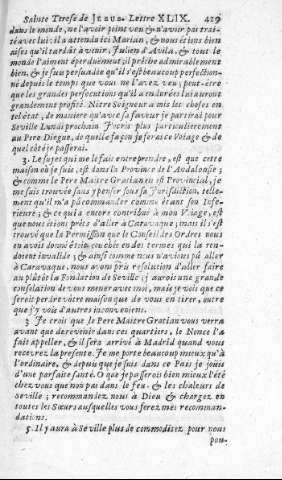 Sainte Terese de Jesus. Lettre XLIX. 429
dans le monde, ne l'avoir point veu & n'avoir pai trai-
té avec lui: il a attendu ici Marian, & nous étions bien
aises qu'il tardât à venir. Julien d'Avila, & tout le
monde l'aiment éperduëment; il prêche admirablement
bien, & je suis persuadée qu'il s'est beaucoup perfection-
né depuis le temps que vous ne l'avez veu; peut-être
que les grandes persecutions qu'il a endurées lui auront
grandement profité. Nôtre Seigneur a mis les choses en
tel état, de maniere qu'avec sa faveur je partirai pour
Seville Lundi prochain. J'écris plus particulierement
au Pere Diegue, de quelle façon je ferai ce Voiage & de
quel côté je passerai.
3. Le sujet qui me le fait entreprendre, est que cette
maison où je suis, est dans la Province de l'Andalousie;
& comme le Pere Maître Gratian en est Provincial, je
me suis trouvée sans y penser sous sa Jurisdiction, telle-
ment qu'il m'a pû commander comme étant son Infe-
rieure; & ce qui a encor contribué à mon Voiage, est
que nous étions prêts d'aller à Caravaque; mais il s'est
trouvé que la Permission que le Conseil des Ordres nous
en avoit donné étoit couchée en des termes qui la ren-
doient invalide; & ainsi comme nous n'avions pû aller
à Caravaque, nous avons pris resolution d'aller faire
au plûtôt la Fondation de Seville; j'aurois une grande
consolation de vous mener avec moi, mais je vois que ce
seroit perdre vôtre maison que de vous en tirer, outre
que j'y vois d'autres inconveniens.
3 Je crois que le Pere Maître Gratian vous verra
avant que de revenir dans ces quartiers, le Nonce l'a
fait appeller, & il sera arrivé à Madrid quand vous
recevrez la presente. Je me porte beaucoup mieux qu'à
l'ordinaire, & depuis que je suis dans ce Païs je joüis
d'une parfaite santé. O que je passerois bien mieux l'été
chez vous que non pas dans le feu & les chaleurs de
Seville; recommandez nous à Dieu & chargez en
toutes les Sœurs ausquelles vous ferez mes recomman-
dations.
5. Il y aura à Seville plus de commoditez pour nous
pou-